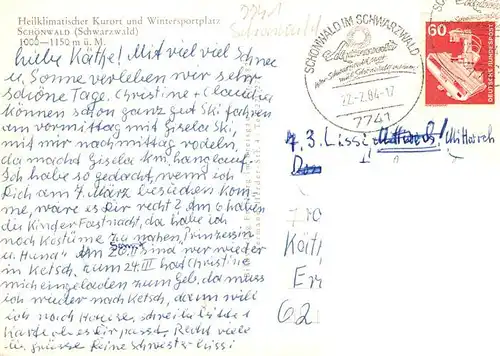 Heilklimatischer Kurort und Wintersportplatz
SCHÖNWALD (Schwarzwald)
1000–1150 m ü. M.
7741
Schönwald
SCHÖNWALD IM SCHWARZWALD
22.-2.84-17
7741
60
DEUTSCHE BUNDESPOST
Liebe Käthe! Mit viel viel Schnee
u. Sonne verleben wir sehr
schöne Tage. Christine + Claudia
können schon ganz gut Ski fahren
am vormittag mit Gisela Ski,
mit mir nachmittag rodeln,
da macht Gisela langlauf.
Ich habe so gedacht, wenn ich
Dich am 7. März besuchen kom-
me, wäre es dir recht? Am 6 haben
die Kinder Fastnacht, da habe ich
noch Kostüme zu nähen, Prinzessin
u. Hund Am sind wir wieder
in Ketsch. zum 24. III hat Christine
mich eingeladen zum Geb, da muss
ich wieder nach Ketsch, dann will
ich nach Hause, schreibe bitte 1
Karte ob es dir passt. Recht viele
Grüsse Deine Schwester Lissi
7.3. Lissi Mittwoch! Mittwoch
Käth
62